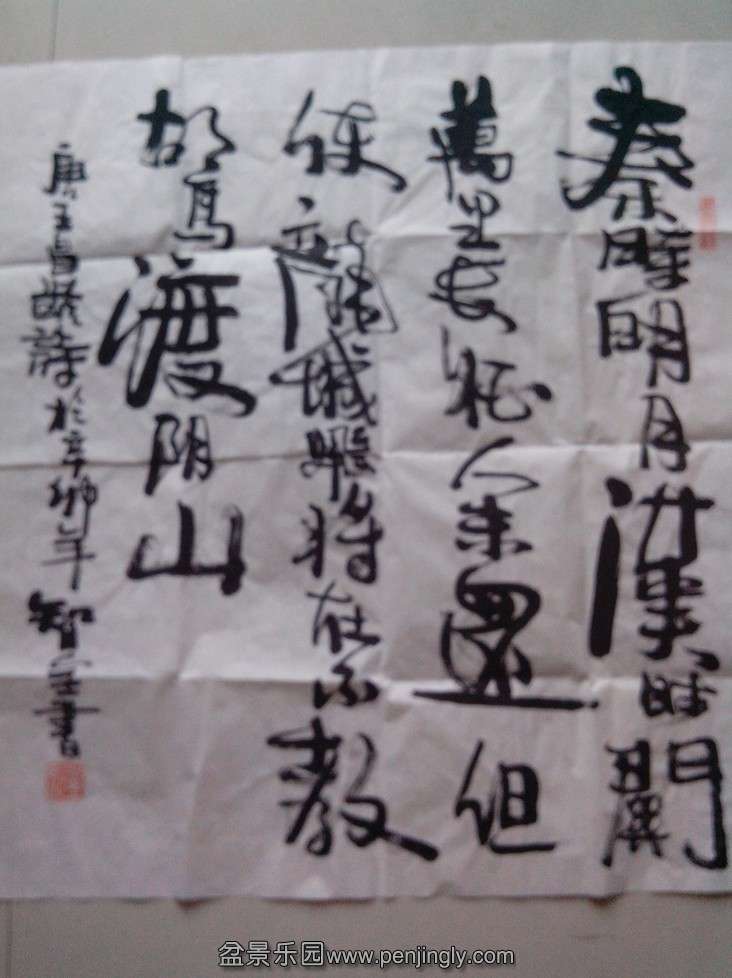 秦時明月漢时關
萬里長征人未還但
使龍城飛將在不教
胡馬渡阴山
唐王昌齡詩於辛卯年智書
盆景乐园www.penjingly.com